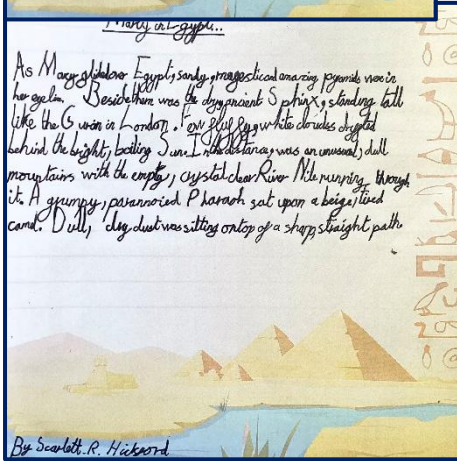 Mary in Egypt..
As Mary glided over Egypt, sandy, magestic and amazing pyramids were in
her eyeline. Beside them was the dry, ancient Sphinx, standing tall
like the G in London. Few fluffy, white cloudes drifted
behind the bright, boiling Sun. In the distance, was an unusual, dull
mountains with the empty, crystal clear River Nile running through
it. A grumpy, parannoied Pharaoh sat upon a beige, tired
camel. Dull, dry dust was sitting ontop of a sharp, straight path.
By Scarlett. R. Hickford